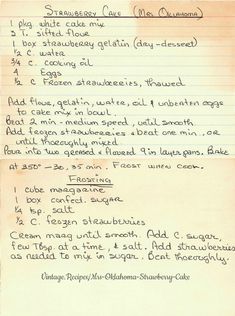 STRAWBERRY CAKE (MRS OKLAHOMA)
1 pkg. white cake mix
3 T. sifted flour
1 box strawberry gelatin (dry-dessert)
1/2 C. water
3/4 C. cooking oil
4 Eggs
1/2 C Frozen strawberries, thawed
Add flour, gelatin, water, oil & unbeaten eggs
to cake mix in bowl.
Beat 2 min - medium speed, until smooth
Add frozen strawberries & beat one min, or
until thoroughly mixed.
Pour into two greased & floured 9 in layer pans. Bake
AT 350° - 30, 35 min. FROST WHEN COOL.
FROSTING
1 cube margarine
1 box confect. sugar
1/4 tsp. salt
1/2 C. frozen strawberries
Cream marg until smooth. Add C. sugar,
few Tbsp. at a time, & salt. Add strawberries
as needed to mix in sugar. Beat thoroughly.
Vintage.Recipes/Mrs-Oklahoma-Strawberry-Cake